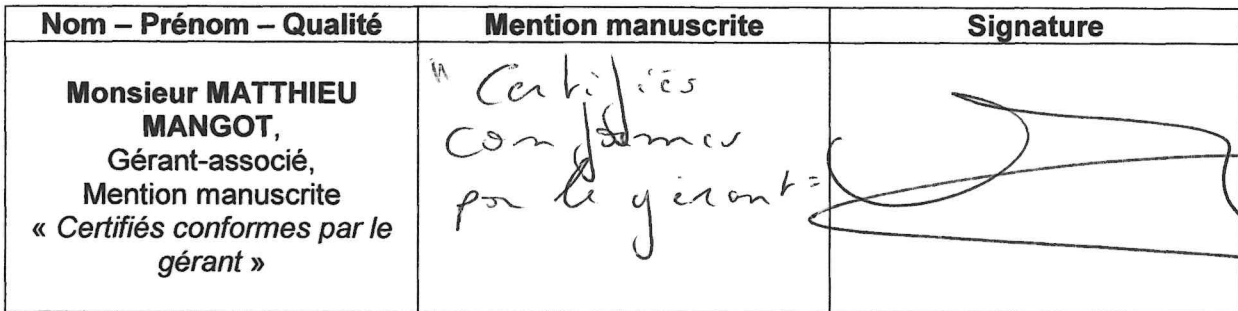 Nom – Prénom – Qualité
Mention manuscrite
Signature
Monsieur MATTHIEU
MANGOT,
Gérant-associé,
Mention manuscrite
« Certifiés conformes par le
gérant »
" Certifiés
conformes
par le gérant "